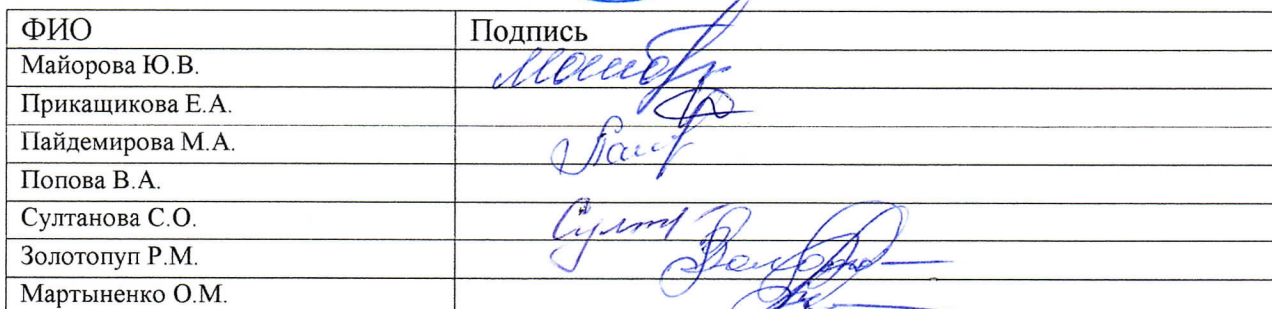 ФИО Подпись
Майорова Ю.В.
Прикащикова Е.А.
Пайдемирова М.А.
Попова В.А.
Султанова С.О.
Золотопуп Р.М.
Мартыненко О.М.